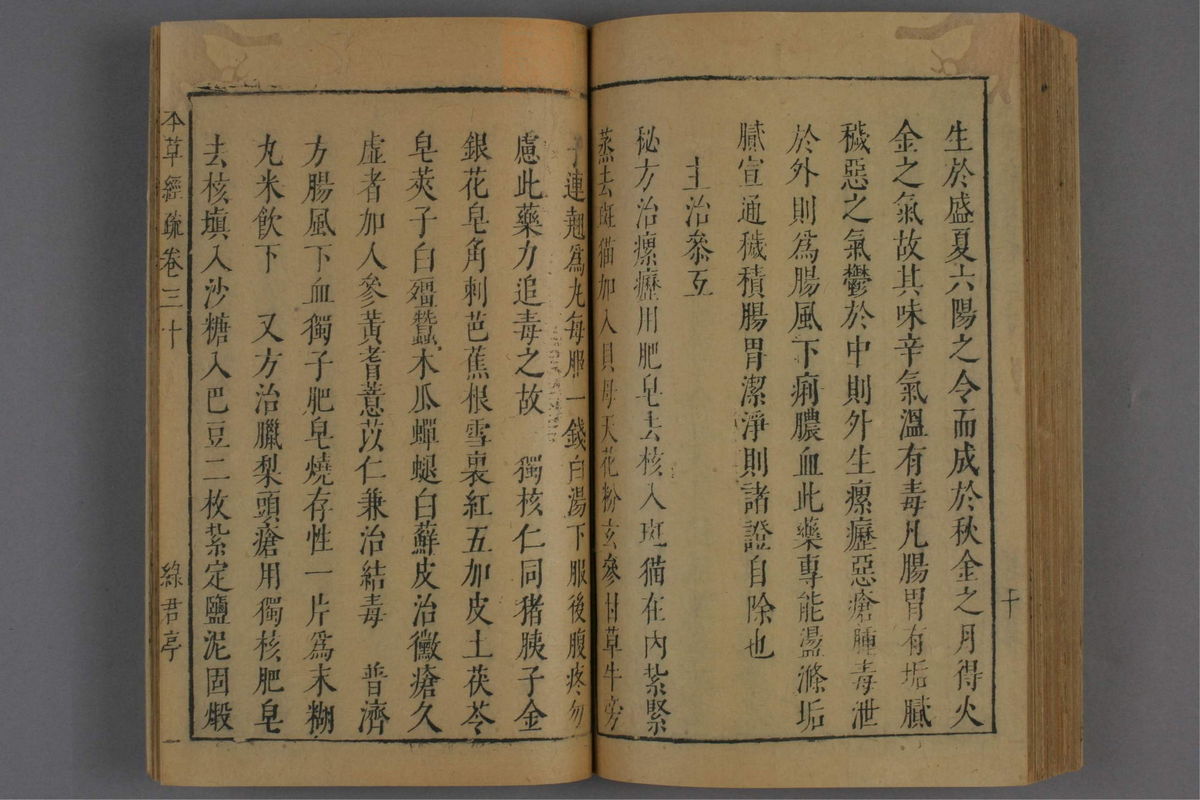 生於盛夏六陽之令而成於秋金之月得火
金之氣故其味辛氣溫有毒凡腸胃有垢膩
穢惡之氣鬱於中則外生瘰癧惡瘡腫毒泄
於外則為腸風下痢膿血此藥專能盪滌垢
膩宣通穢積腸胃潔淨則諸證自除也
主治叅互
秘方治瘰癧用肥皂去核入斑猫在內紮緊
蒸去斑猫加入貝母天花粉玄參甘草牛旁
子連翹爲丸每服一錢白湯下服後腹疼勿
慮此藥力追毒之故 獨核仁同猪胰子金
銀花皂角刺芭蕉根雪裏紅五加皮土茯苓
皂莢子白殭蠶木瓜蟬蛻白蘚皮治黴瘡久
虛者加人參黃耆薏苡仁兼治結毒 普濟
方腸風下血獨子肥皂燒存性一片爲末糊
丸米飲下 又方治臘梨頭瘡用獨核肥皂
去核塡入沙糖入巴豆二枚紮定鹽泥固煅
本草經疏卷三十
綠君亭